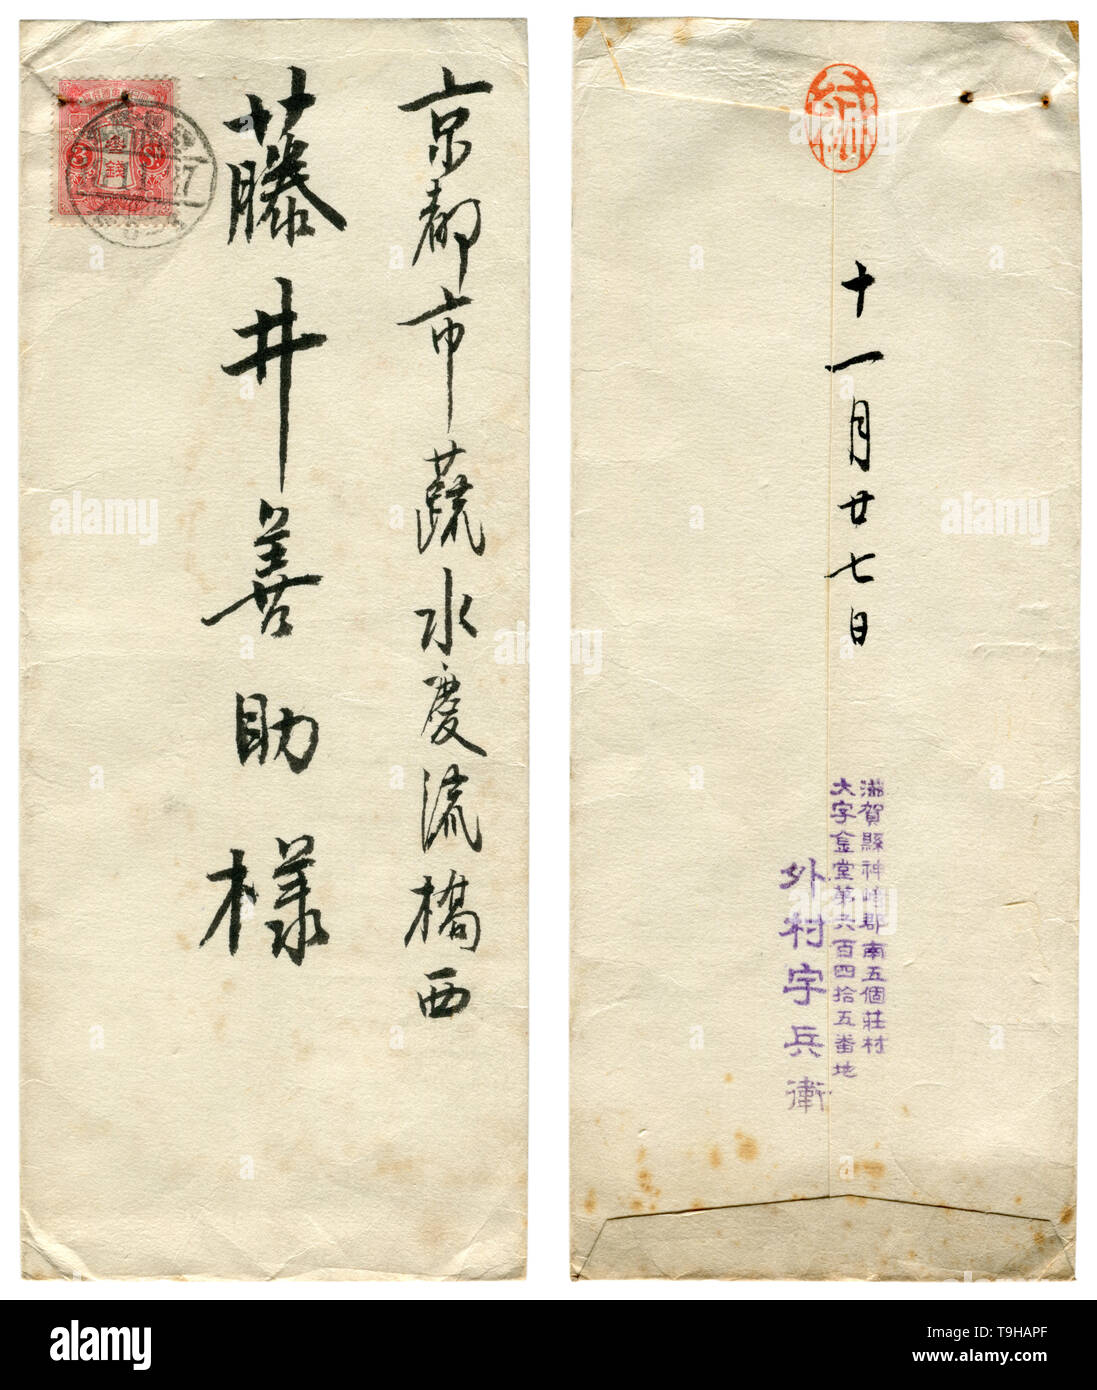 京都市蔬水慶流橋西
藤井善助様
参銭
十一月廿七日
滋賀縣神崎郡南五個荘村
大字金堂第六百四拾五番地
外村宇兵衛
alamy
Image ID: T9HAPF
www.alamy.com